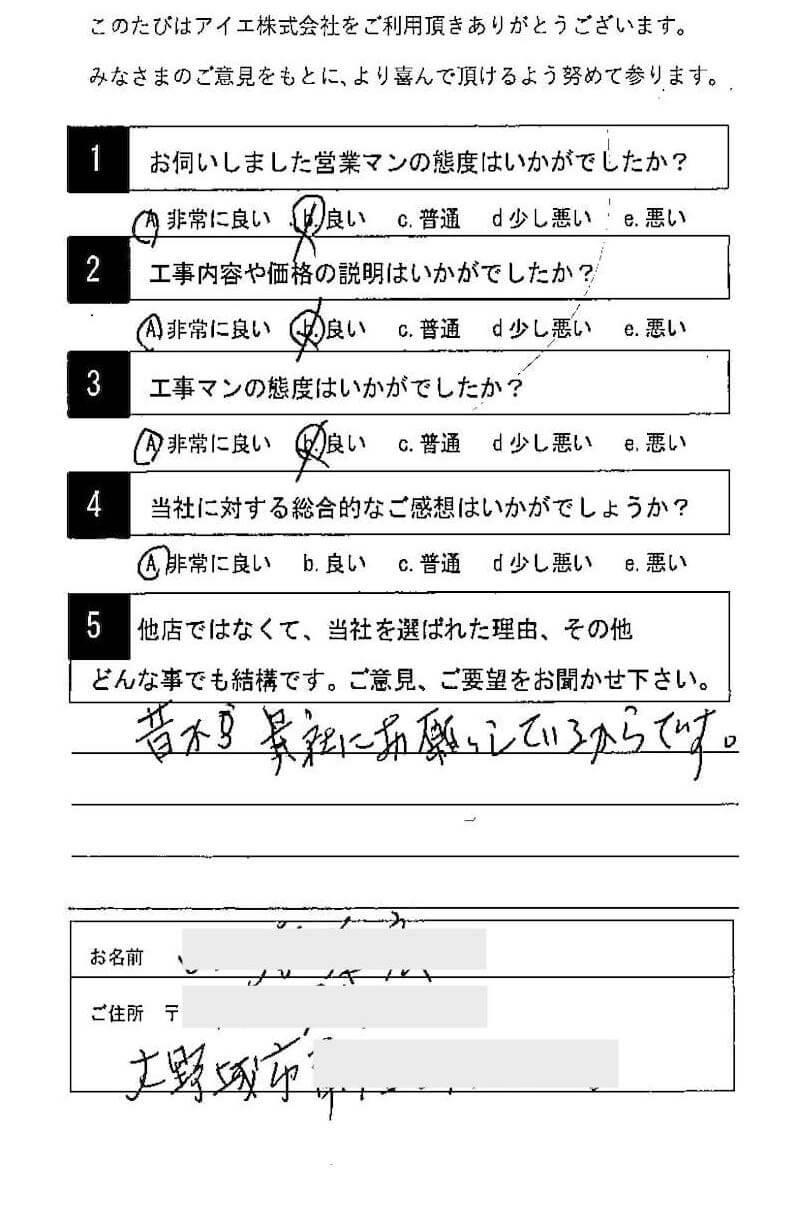 このたびはアイエ株式会社をご利用頂きありがとうございます。
みなさまのご意見をもとに、より喜んで頂けるよう努めて参ります。
1 お伺いしました営業マンの態度はいかがでしたか？
A 非常に良い b. 良い c. 普通 d 少し悪い e. 悪い
2 工事内容や価格の説明はいかがでしたか？
A 非常に良い b. 良い c. 普通 d 少し悪い e. 悪い
3 工事マンの態度はいかがでしたか？
A 非常に良い b. 良い c. 普通 d 少し悪い e. 悪い
4 当社に対する総合的なご感想はいかがでしょうか？
A 非常に良い b. 良い c. 普通 d 少し悪い e. 悪い
5 他店ではなくて、当社を選ばれた理由、その他
どんな事でも結構です。ご意見、ご要望をお聞かせ下さい。
昔から貴社にお願いしているからです。
お名前
ご住所 〒
大野城市